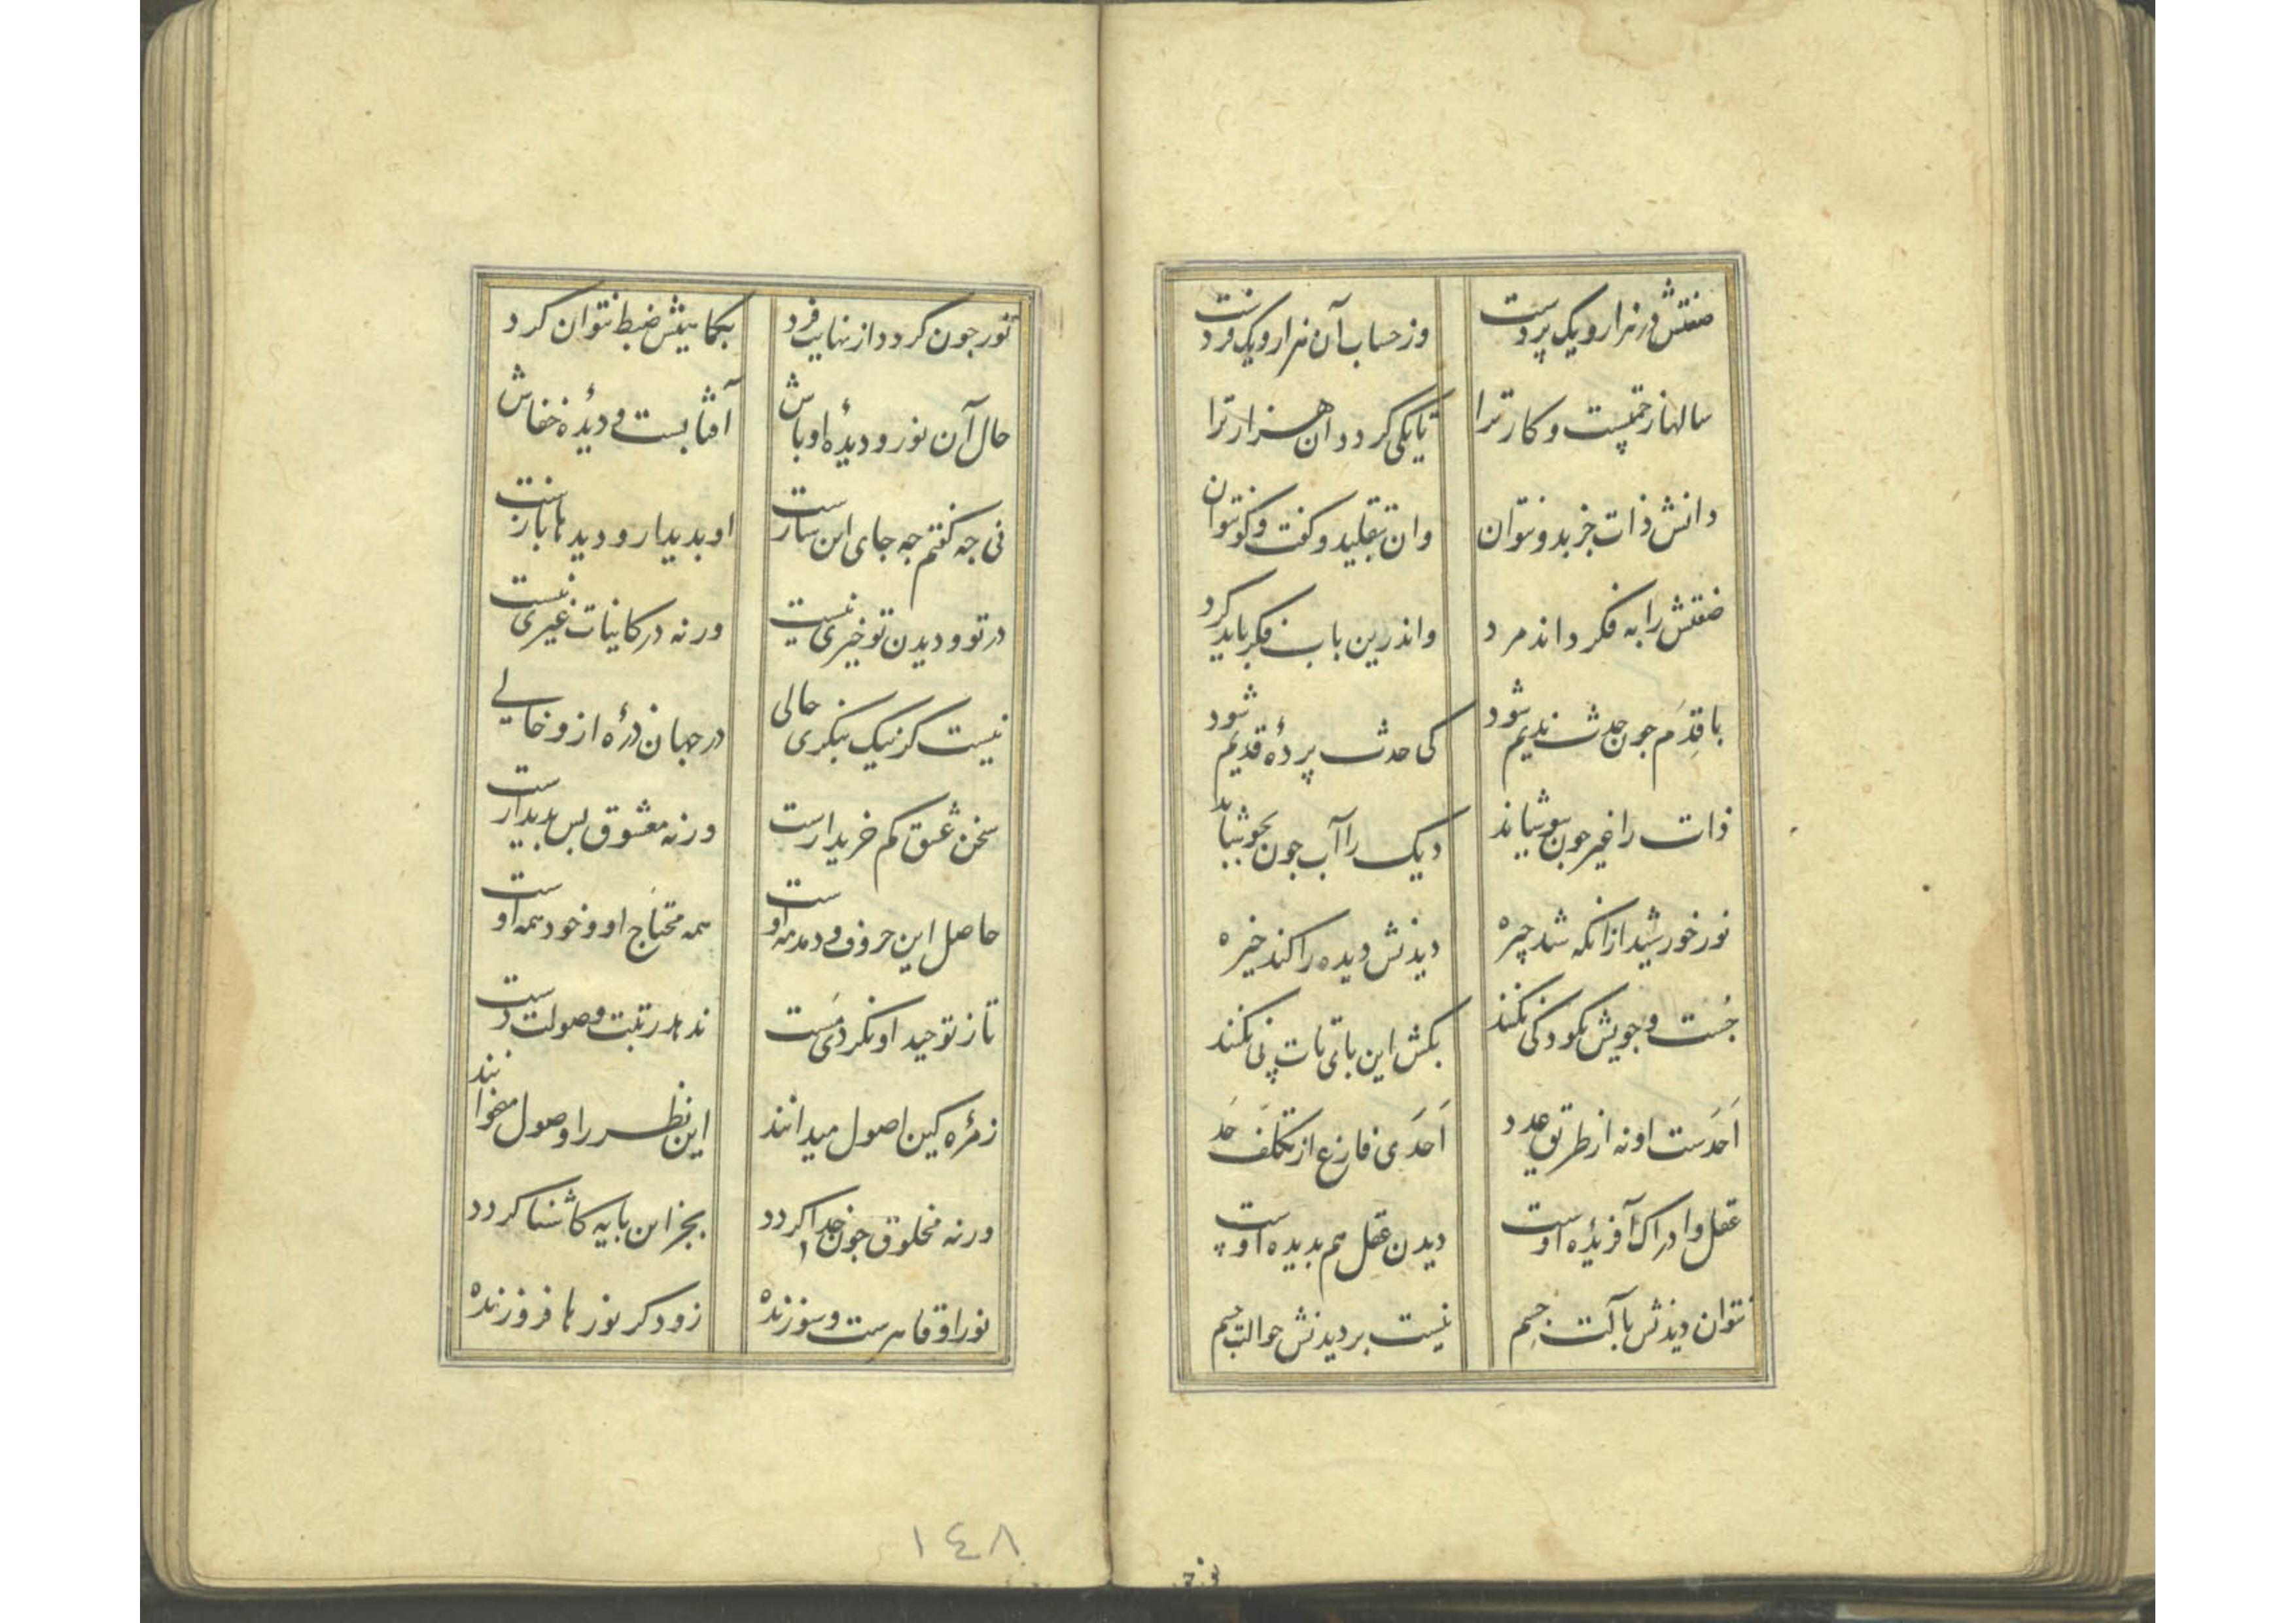 صفتش در هزار و یک پردست وز حساب آن هزار و یک فردست
سالها زحمتست و کار ترا تا یکی گردد آن هزار ترا
دانش ذات جز بدو نتوان وان بتقلید و گفت و گو نتوان
صفتش را به فکر داند مرد واندرین باب فکر باید کرد
با قِدَم جون حدث ندیم شود کی حدث پردۀ قدیم شود
ذات را غیر جون بپوشاند دیک را آب جون بجوشاند
نور خورشید ازانکه شد چیره دیدنش دیده را کند خیره
جُست و جویش بکودکی نکنند بکش این بای تات پی نکنند
اَحَدست او نه از طریق عدد اَحَدی فارغ از تکلّف حَد
عقل و ادراک آفریدۀ اوست دیدن عقل هم بدیده اوست
نتوان دیدنش بآلت جسم نیست بر دیدنش حوالت جسم
نور جون کردد از نهایت فرد بکما بیشش ضبط نتوان کرد
حال آن نور و دیدۀ اوباش آفتابست و دیدۀ خفاش
نی جه کفتم جه جای این سازست او بدیدار و دیدها بازست
در تو و دیدن تو خیری نیست ورنه در کاینات غیری نیست
نیست کر نیک بنکری حالی در جهان ذرۀ ازو خالی
سخن عشق کم خریدارست ورنه معشوق بس بدیدارست
حاصل این حروف و دمدمه اوست همه محتاج او و خود همه اوست
تا ز توحید او نکردی مَست ندهد رتبت وصولت دست
زمرۀ کین اصول میدانند این نظر را وصول میخوانند
ورنه مخلوق جون خدا کردد بجز این بایه کاشنا کردد
نور او قاهرست و سوزنده زود کر نورها فروزنده
١٤٨